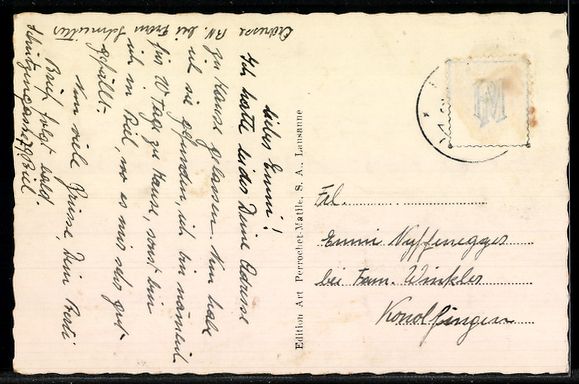 Liebes Emmi!
Ich hatte leider Deine Adresse
zu Hause gelassen. Nun habe
ich sie gefunden, ich bin nämlich
für 10 Tage zu Hause, sonst bin
ich in Biel, wo es mir sehr gut
gefällt.
Nun viele Grüsse, Dein
Brief folgt bald.
Adresse bei Frau
Edition Art Perrochet-Matile, S. A., Lausanne
Frl.
Emmi Nyffenegger
bei Fam. Winkler
Konolfingen